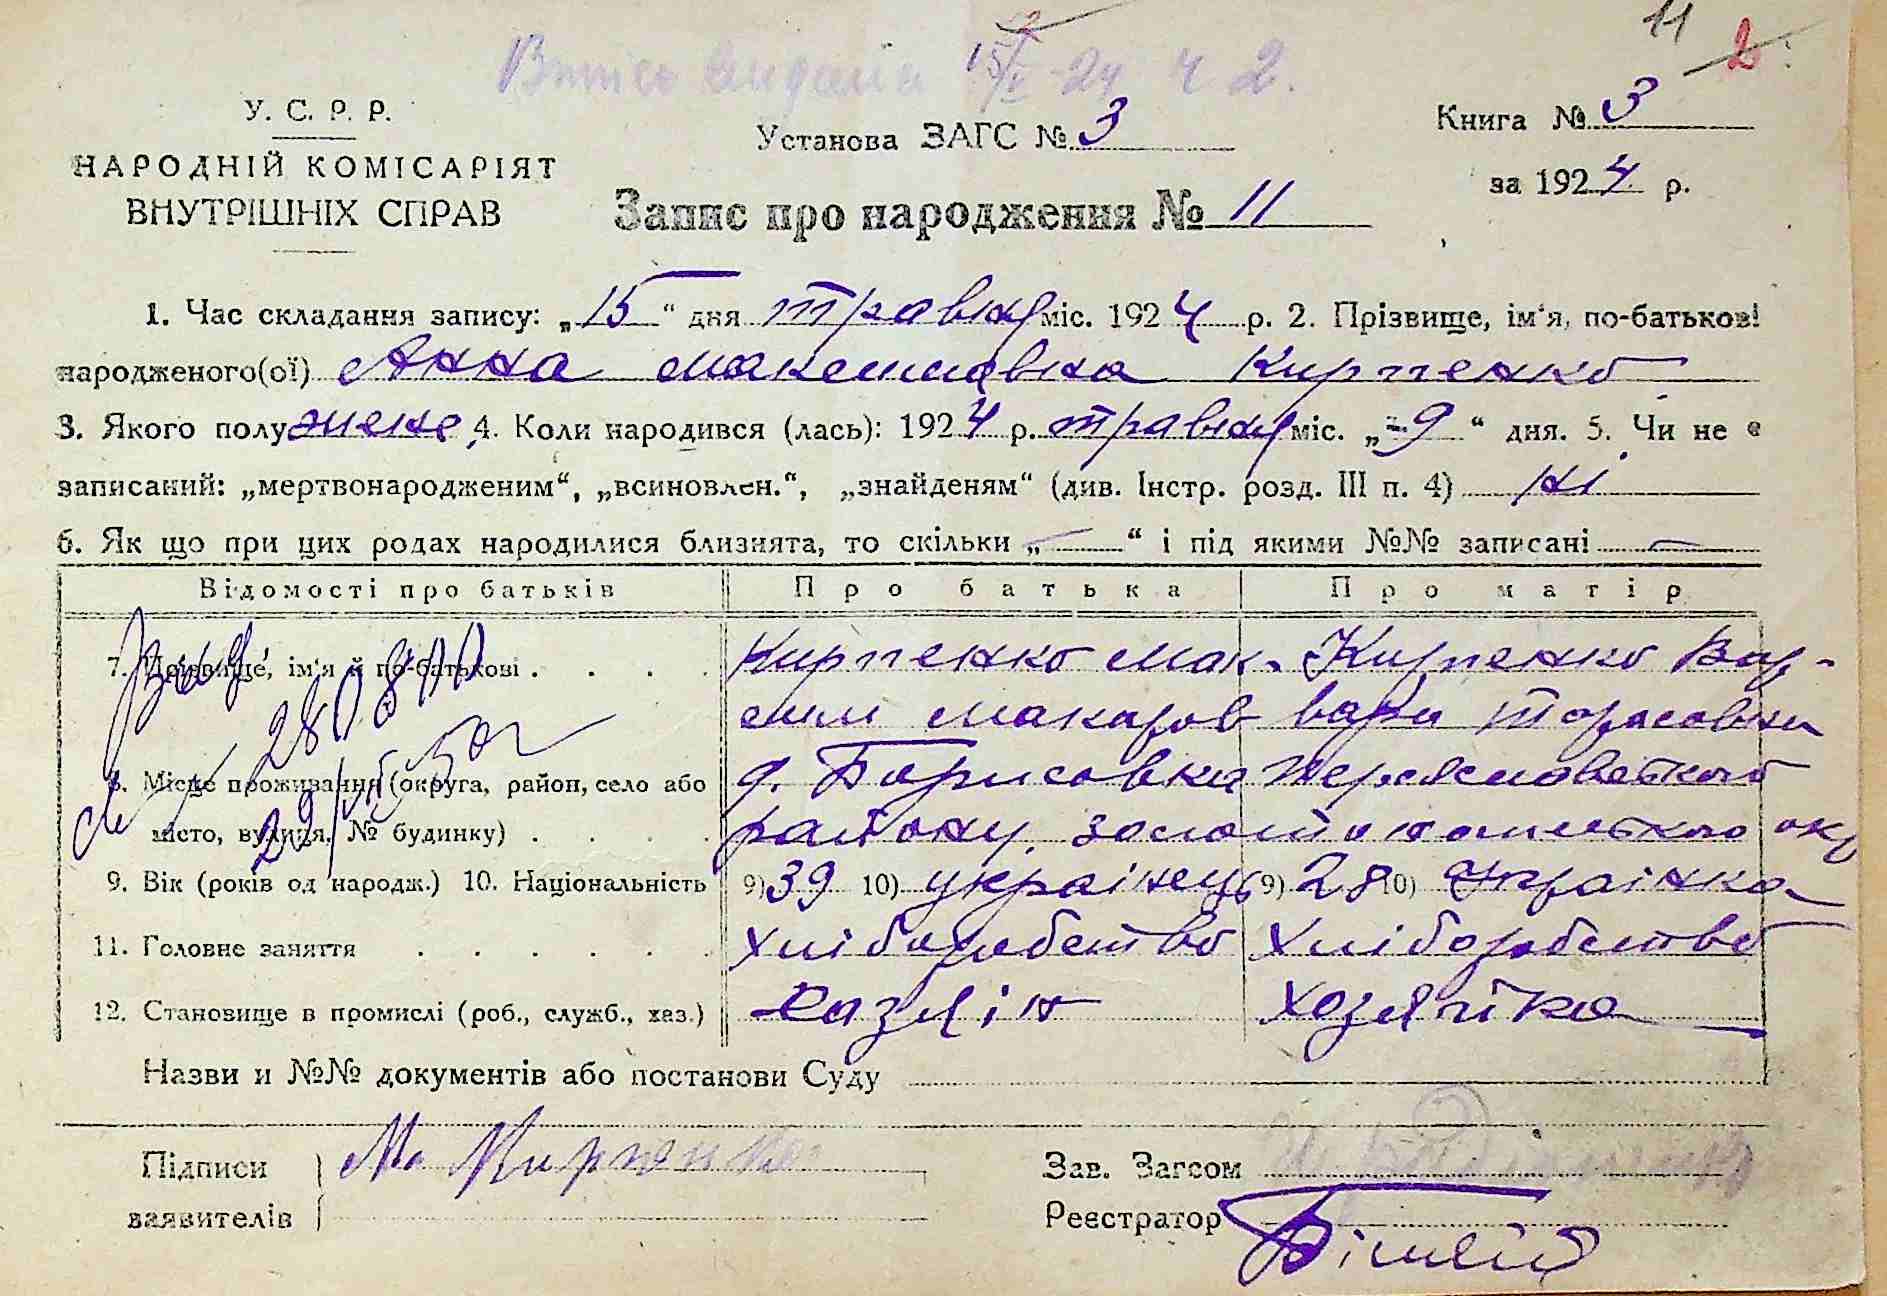 11 2
Витяг видала 15/V-24 Ч 2.
У. С. Р. Р.
НАРОДНІЙ КОМІСАРІЯТ
ВНУТРІШНІХ СПРАВ
Установа ЗАГС № 3
Книга № 3
за 1924 р.
Запис про народження № 11
1. Час складання запису: „15“ дня травня міс. 1924 р. 2. Прізвище, ім'я, по-батькові
народженого(ої) Анна Максимовна Кирпенко
3. Якого полу жене 4. Коли народився (лась): 1924 р. травня міс. „9“ дня. 5. Чи не є
записаний: „мертвонародженим“, „всиновлен.“, „знайденям“ (див. Інстр. розд. III п. 4) ні
6. Як що при цих родах народилися близнята, то скільки „—“ і під якими №№ записані —
Відомості про батьків Про батька Про матір
7. Прізвище, ім'я й по-батькові . . . . Кирпенко Мак- Кирпенко Вар-
сим Макаров вара Тарасовна
8. Місце проживання (округа, район, село або д. Борисовка Переяславського
місто, вулиця, № будинку) . . . . району, золотоношського окр
9. Вік (років од народж.) 10. Національність 9) 39 10) українець 9) 28 10) українка
11. Головне заняття . . . . . . хліборобство хліборобство
12. Становище в промислі (роб., служб., хаз.) хазяін хозяйка
Назви и №№ документів або постанови Суду
Підписи М. Кирпенко
заявителів
Зав. Загсом
Реєстратор